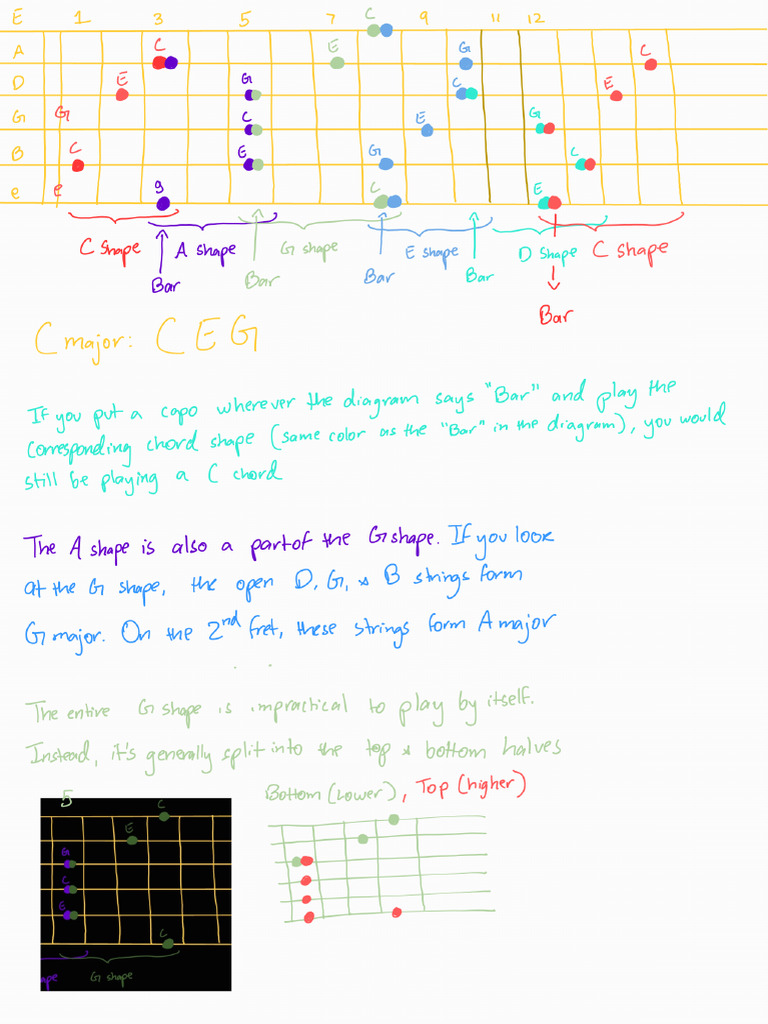 E 1 3 5 7 C 9 11 12
A C E G C
D E G C E
G G C E G
B C E G C
e e g C E
C shape A shape G shape E shape D shape C shape
Bar Bar Bar Bar Bar
C major: C E G
If you put a capo wherever the diagram says "Bar" and play the
corresponding chord shape (same color as the "Bar" in the diagram), you would
still be playing a C chord
The A shape is also a part of the G shape. If you look
at the G shape, the open D, G, & B strings form
G major. On the 2nd fret, these strings form A major
The entire G shape is impractical to play by itself.
Instead, it's generally split into the top & bottom halves
Bottom (lower), Top (higher)
5 C
E
G
C
E
C
ape G shape